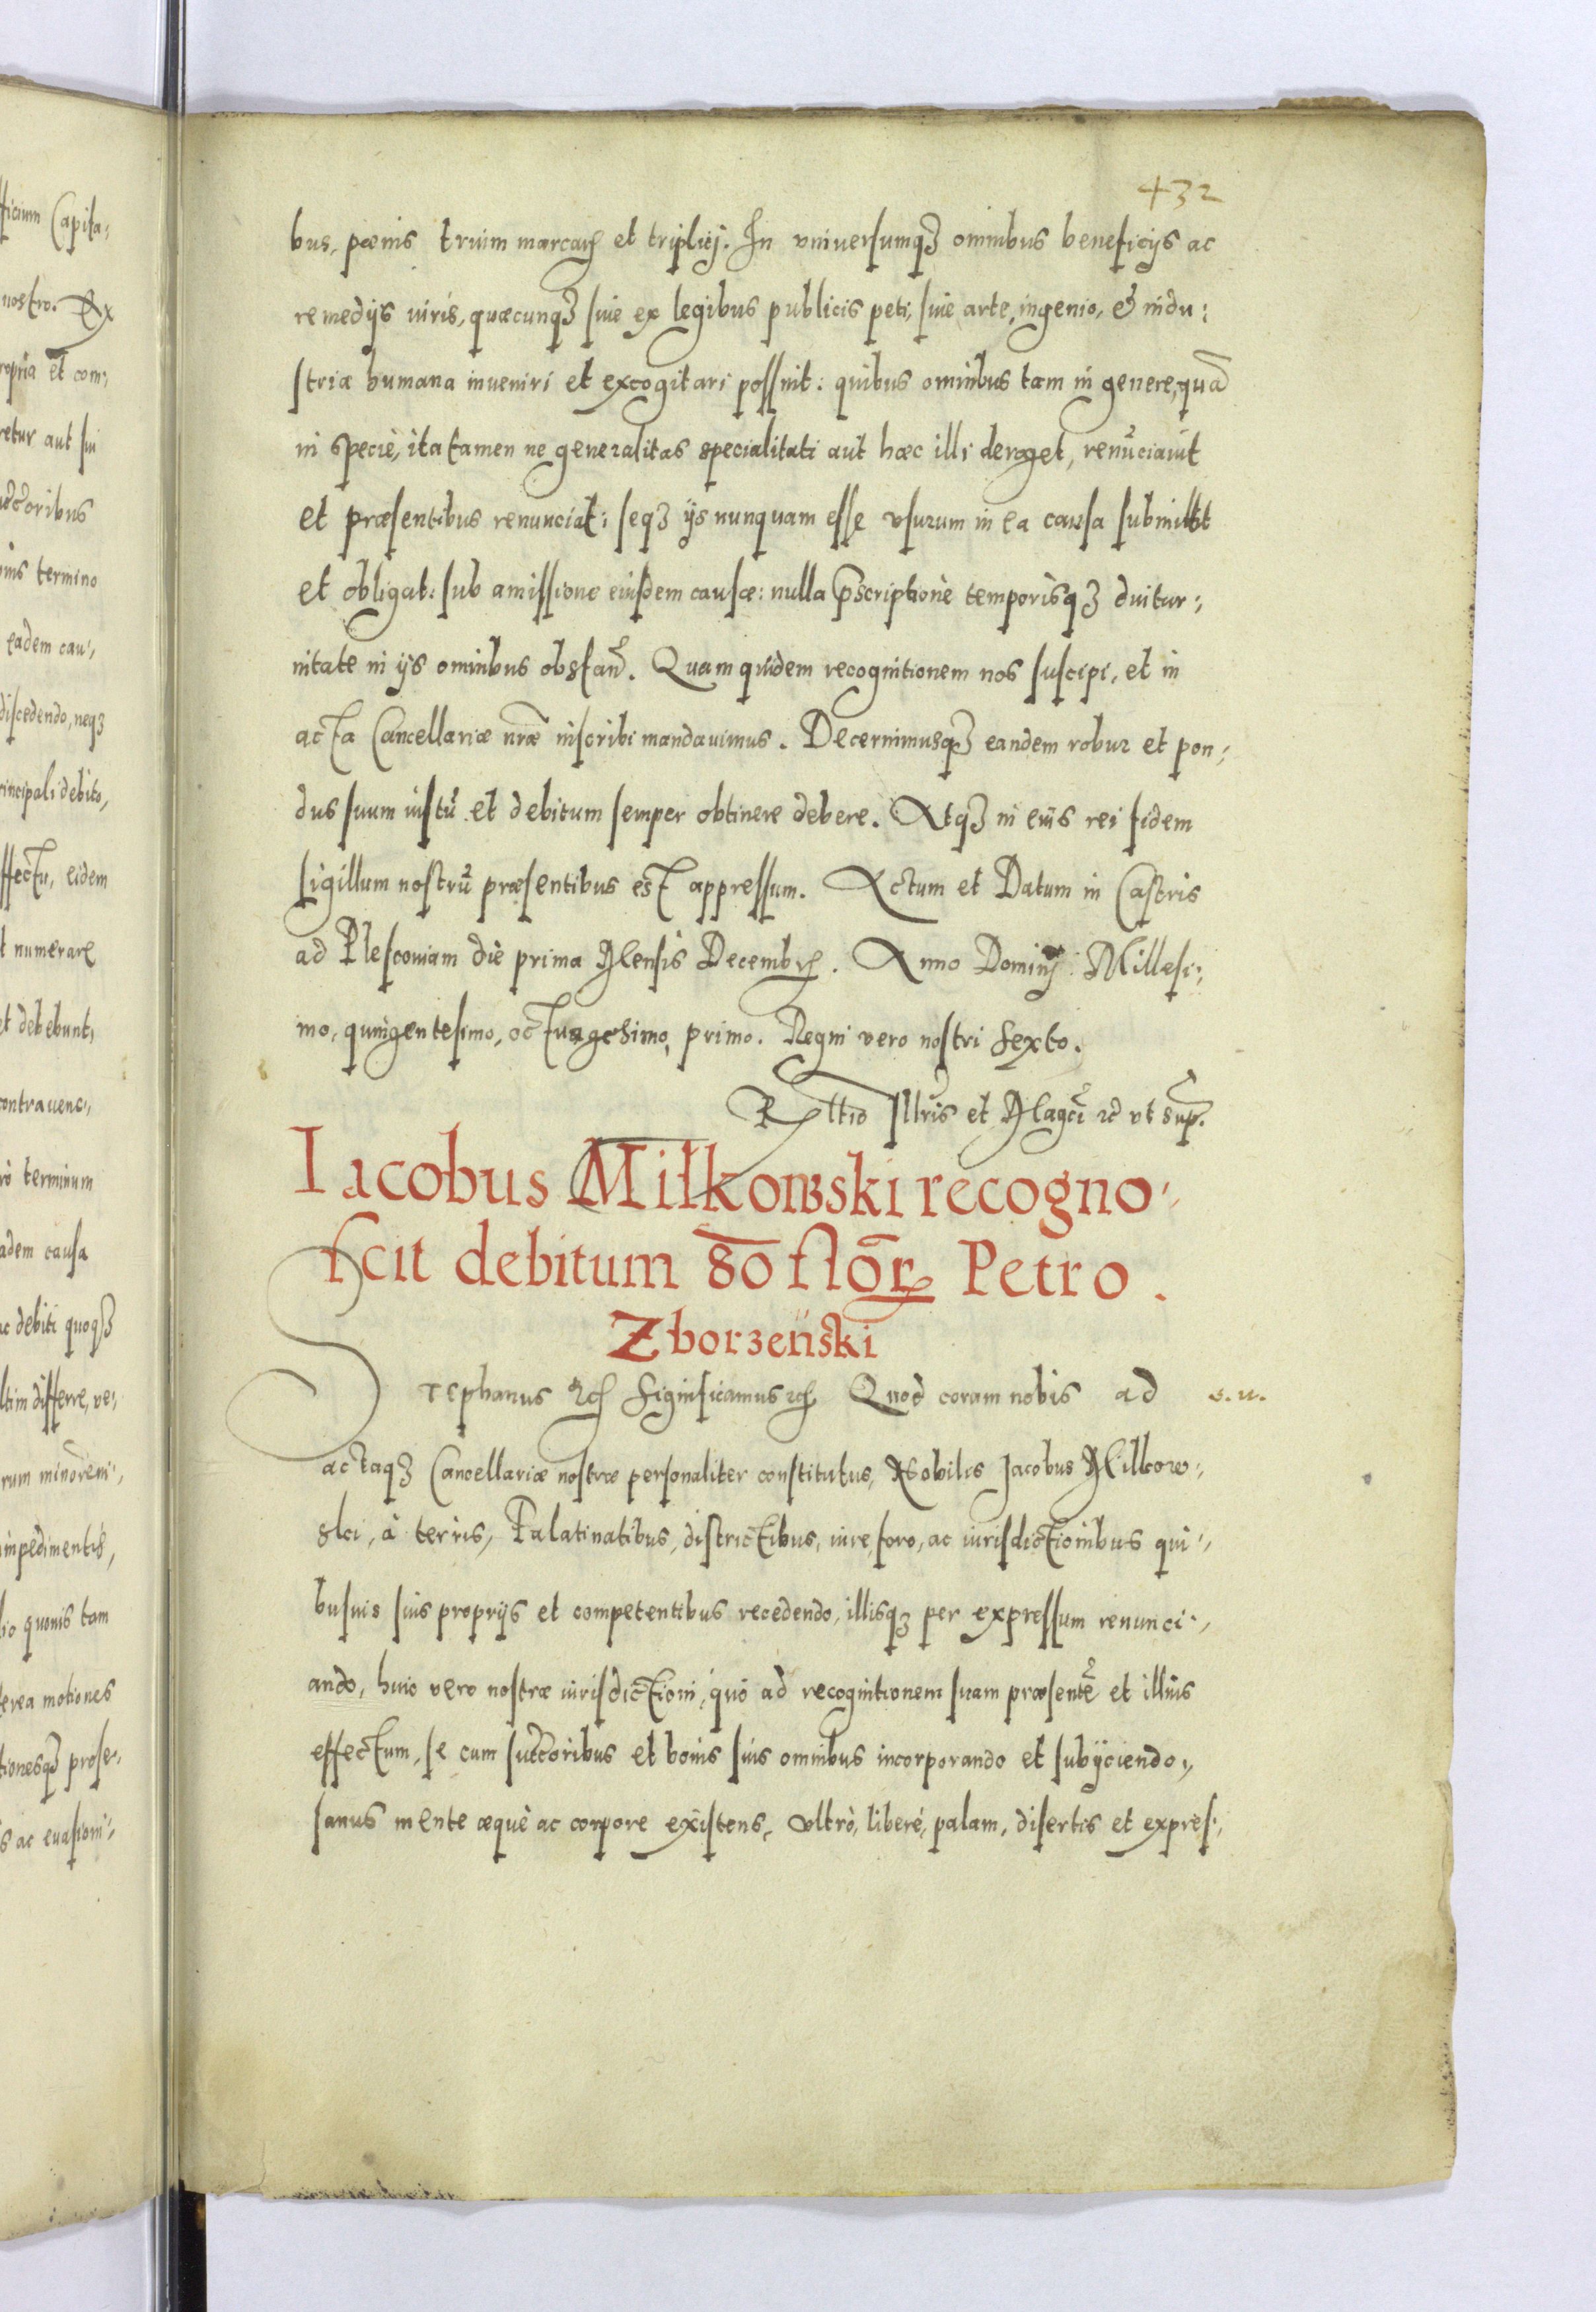 ficium Capita:
nostro. Ex
ropria et com:
retur aut sui
oribus
termino
eadem cau:,
discedendo, neqȝ
rincipali debito,
ffectu, eidem
t numerare
et debebunt,
contrauenc:,
rò terminum
adem causa
ac debiti quoqȝ
ltim differre, ve:,
rum minorem:,
impedimentis,
io quouis tam
terea motiones
tionesqȝ prose:,
s ac euasioni:,
432
bus, pœnis trium marcarꝝ et triplicj. In vniuersumqȝ omnibus beneficijs ac
remedijs iuris, quæcunqȝ siue ex legibus publicis peti, siue arte, ingenio, & indu:
striæ humana inueniri et excogitari possint: quibus omnibus tam in genere, quā
in specie, ita tamen ne generalitas specialitati aut hæc illi deroget, renūciauit
et præsentibus renunciat: seqȝ ijs nunquam esse vsurum in ea causa submittit
et obligat: sub amissione eiusdem causæ: nulla p̄scriptione temporisqȝ diutur:,
nitate in ijs omnibus obstan̄. Quam quidem recognitionem nos suscipi, et in
acta Cancellariæ nr̄æ inscribi mandauimus. Decernimusqȝ eandem robur et pon:,
dus suum iustū et debitum semper obtinere debere. Atqȝ in eius rei fidem
sigillum nostrū præsentibus est appressum. Actum et Datum in Castris
ad Plescouiam die prima Mensis Decembrꝭ. Anno Dominj Millesi:,
mo, quingentesimo, octuagesimo, primo. Regni vero nostri sexto.
Rꝫltio Illris et Magcī ꝛc̄ vt sup̄.
Iacobus Milkowski recogno:,
scit debitum 80 flōrꝝ Petro.
Zborzeński
Stephanus ꝛcꝭ Significamus ꝛcꝭ Quod coram nobis ad s. u.
actaqȝ Cancellariæ nostræ personaliter constitutus, Nobilis Jacobus Milkow:,
ski, à terris, Palatinatibus, districtibus, iure, foro, ac iurisdictionibus qui:,
busuis suis proprijs et competentibus recedendo, illisqȝ per expressum renunci:,
ando, huic vero nostræ iurisdictioni, quò ad recognitionem suam præsentē et illius
effectum, se cum succ̄oribus et bonis suis omnibus incorporando et subijciendo:,
sanus mente æquè ac corpore existens, vltrò, liberé, palam, disertis et expres:,